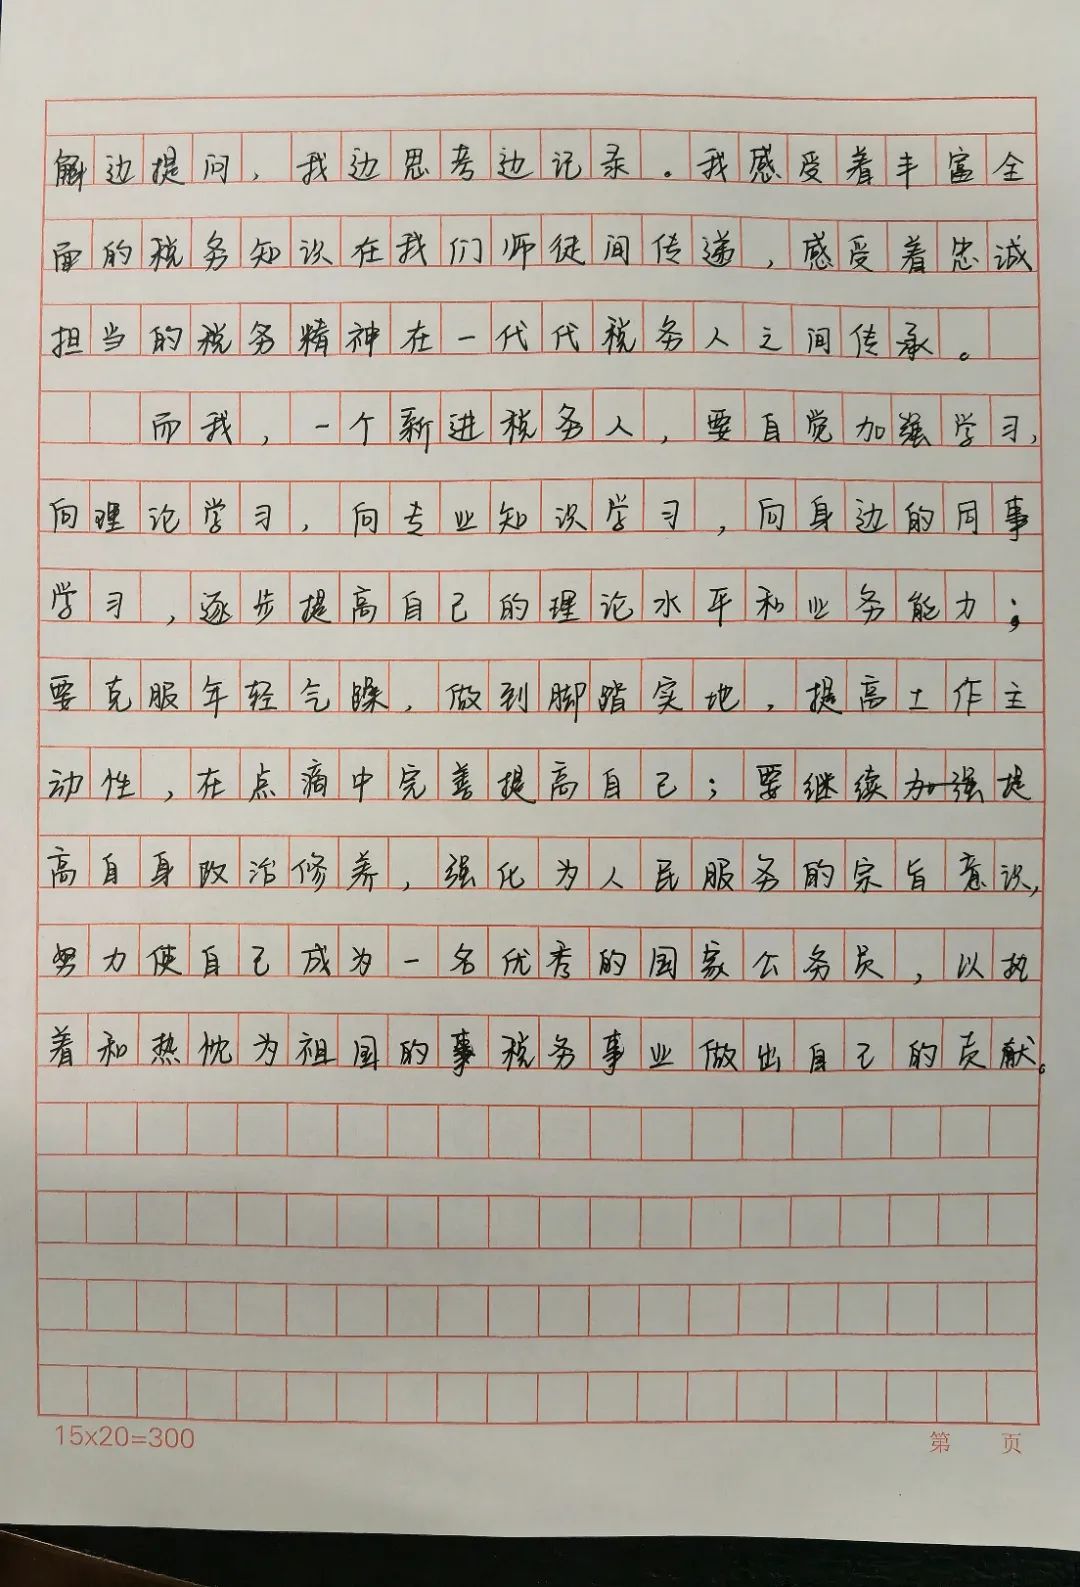 解边提问，我边思考边记录。我感受着丰富全
面的税务知识在我们师徒间传递，感受着忠诚
担当的税务精神在一代代税务人之间传承。
而我，一个新进税务人，要自觉加强学习，
向理论学习，向专业知识学习，向身边的同事
学习，逐步提高自己的理论水平和业务能力；
要克服年轻气躁，做到脚踏实地，提高工作主
动性，在点滴中完善提高自己；要继续加强提
高自身政治修养，强化为人民服务的宗旨意识，
努力使自己成为一名优秀的国家公务员，以执
着和热忱为祖国的事税务事业做出自己的贡献。
15x20=300
第 页